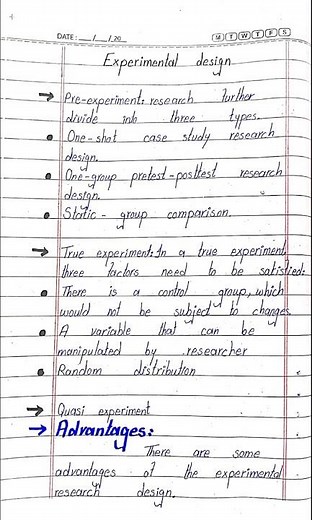 DATE: __/__/20__ M T W T F S
Experimental design
→ Pre-experiment: research further
divide into three types.
• One-shot case study research
design.
• One-group pretest-posttest research
design.
• Static-group comparison.
→ True experiment: In a true experiment,
three factors need to be satisfied:
• There is a control group, which
would not be subject to changes
• A variable that can be
manipulated by researcher
• Random distribution
→ Quasi experiment
→ Advantages:
There are some
advantages of the experimental
research design.